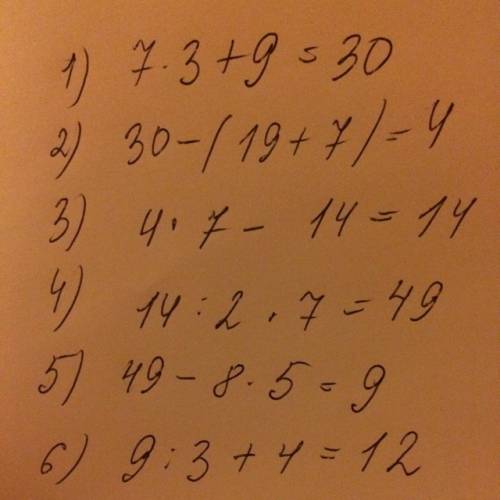 1) 7·3+9=30
2) 30-(19+7)=4
3) 4·7-14=14
4) 14:2·7=49
5) 49-8·5=9
6) 9:3+4=12